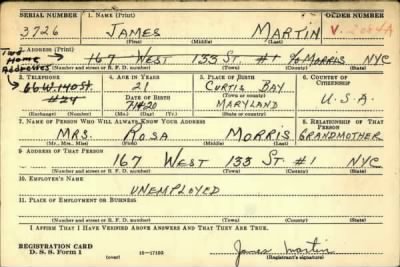 SERIAL NUMBER 1. NAME (Print) ORDER NUMBER
3726 JAMES MARTIN V.
(First) (Middle) (Last)
Two Home Addresses
2. ADDRESS (Print)
167 WEST 133 ST #1 % MORRIS NYC
(Number and street or R. F. D. number) (Town) (County) (State)
3. TELEPHONE 4. AGE IN YEARS 5. PLACE OF BIRTH 6. COUNTRY OF CITIZENSHIP
66 W. 140 ST. 21 CURTIS BAY
#24 DATE OF BIRTH (Town or county) U.S.A.
MARYLAND
(Exchange) (Number) (Mo.) (Day) (Yr.) (State or country)
7. NAME OF PERSON WHO WILL ALWAYS KNOW YOUR ADDRESS 8. RELATIONSHIP OF THAT PERSON
MRS. ROSA MORRIS GRANDMOTHER
(Mr., Mrs., Miss) (First) (Middle) (Last)
9. ADDRESS OF THAT PERSON
167 WEST 133 ST #1 NYC
(Number and street or R. F. D. number) (Town) (County) (State)
10. EMPLOYER'S NAME
UNEMPLOYED
11. PLACE OF EMPLOYMENT OR BUSINESS
(Number and street or R. F. D. number) (Town) (County) (State)
I AFFIRM THAT I HAVE VERIFIED ABOVE ANSWERS AND THAT THEY ARE TRUE.
REGISTRATION CARD
D. S. S. Form 1 (over) 16-17105 James Martin
(Registrant's signature)